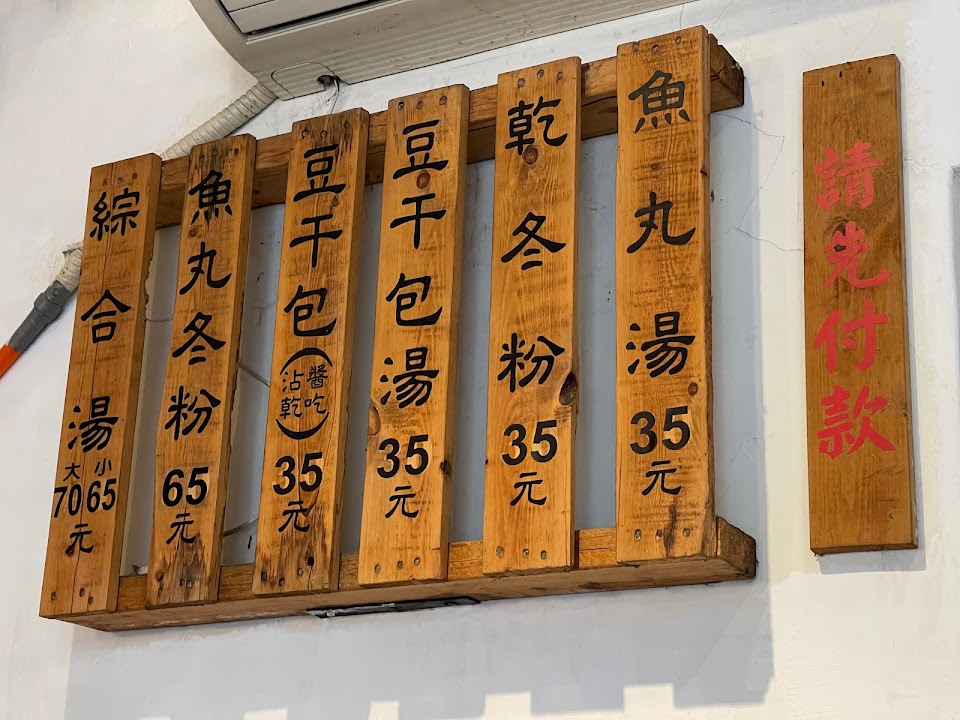 請先付款
魚丸湯
35元
乾冬粉
35元
豆干包湯
35元
豆干包
(沾醬乾吃)
35元
魚丸冬粉
65元
綜合湯
大 小
70 65
元